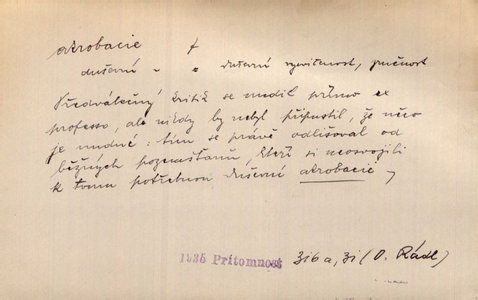 akrobacie f
duševní - = duševní vycvičenost, pružnost
Předválečný kritik se nudil přímo ex
professo, ale nikdy by nebyl připustil, že něco
je nudné: tím se právě odlišoval od
běžných pozemšťanů, kteří si neosvojili
k tomu potřebnou duševní akrobacii,
1935 Přítomnost 316a, 3i (O. Rádl)